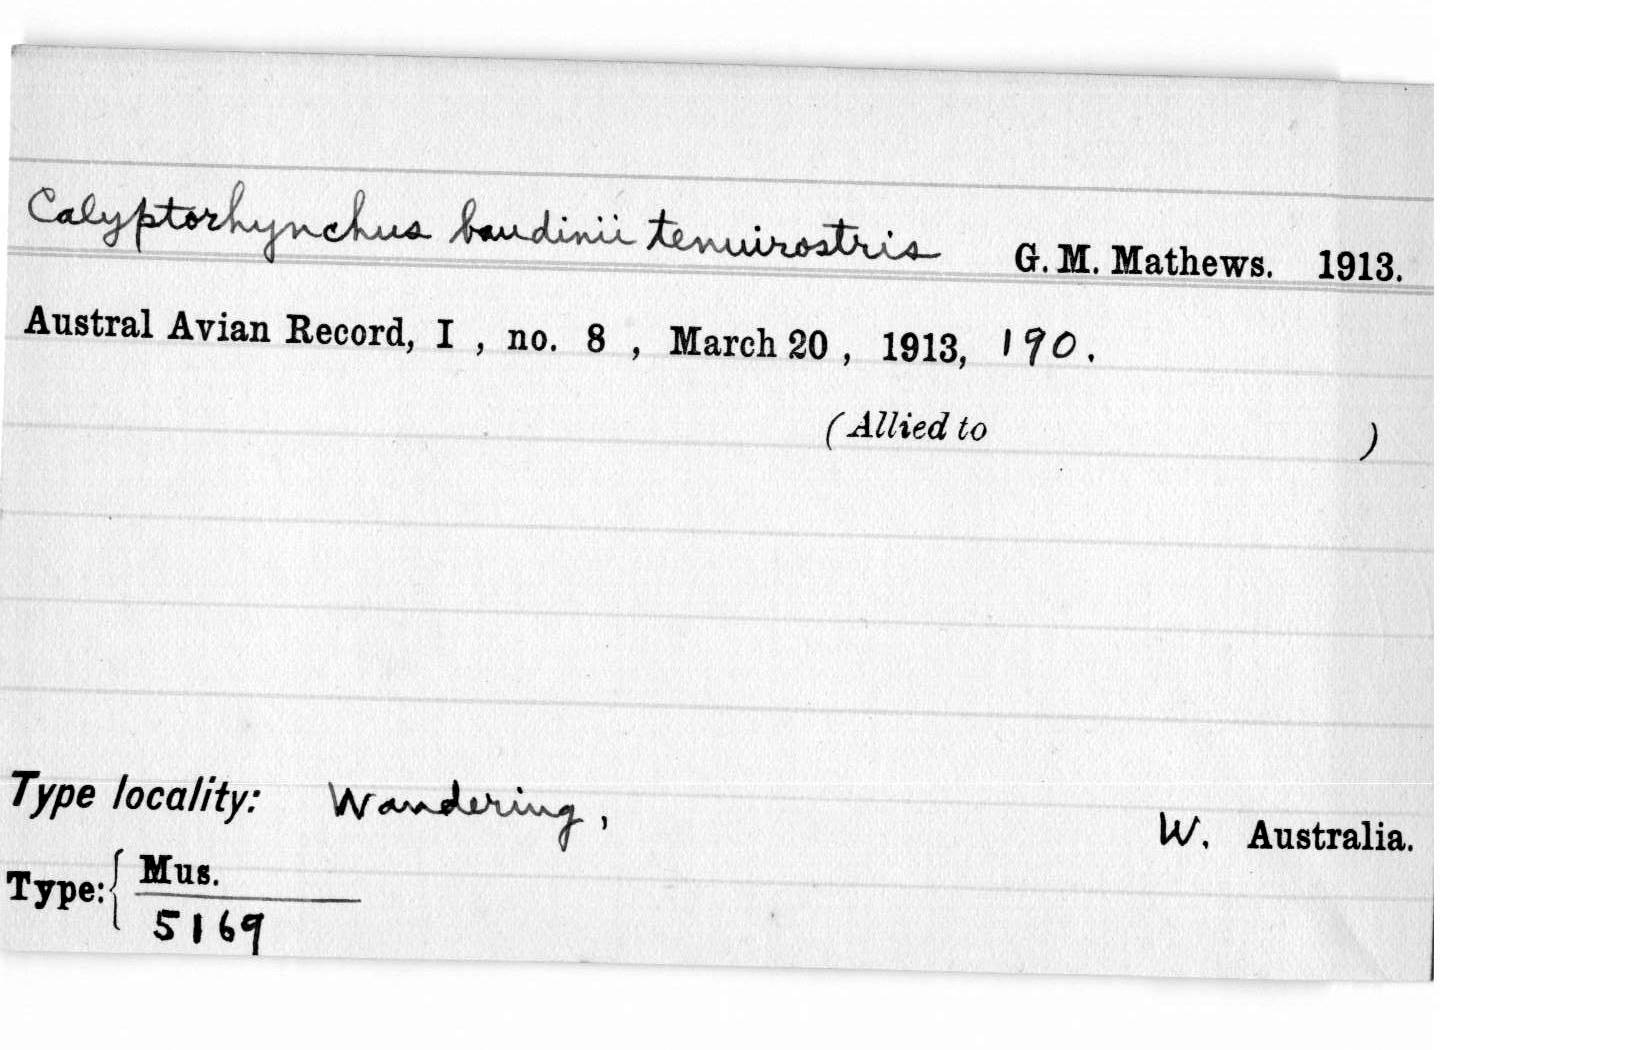 Calyptorhynchus baudinii tenuirostris G. M. Mathews. 1913.
Austral Avian Record, I , no. 8 , March 20 , 1913, 190.
(Allied to )
Type locality: Wandering, W. Australia.
Type: { Mus.
5169